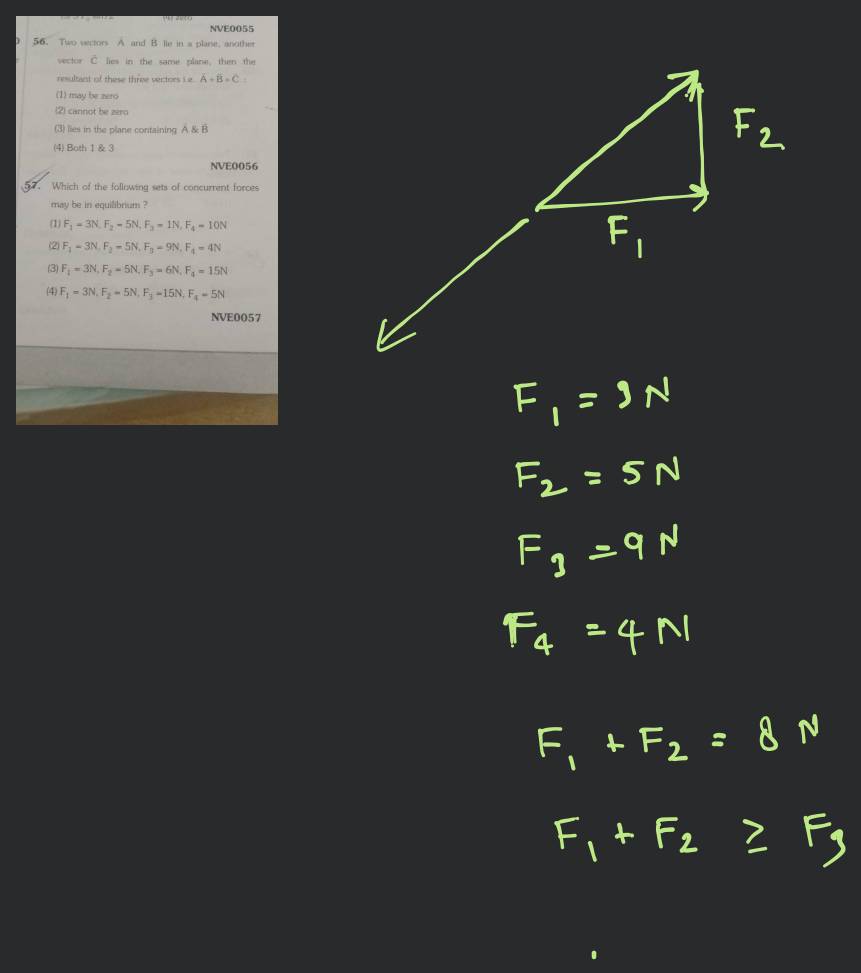 (4) zero
NVE0055
56. Two vectors A⃗ and B⃗ lie in a plane, another
vector C⃗ lies in the same plane, then the
resultant of these three vectors i.e. A⃗ + B⃗ + C⃗ :
(1) may be zero
(2) cannot be zero
(3) lies in the plane containing A⃗ & B⃗
(4) Both 1 & 3
NVE0056
57. Which of the following sets of concurrent forces
may be in equilibrium ?
(1) F₁ = 3N, F₂ = 5N, F₃ = 1N, F₄ = 10N
(2) F₁ = 3N, F₂ = 5N, F₃ = 9N, F₄ = 4N
(3) F₁ = 3N, F₂ = 5N, F₃ = 6N, F₄ = 15N
(4) F₁ = 3N, F₂ = 5N, F₃ =15N, F₄ = 5N
NVE0057
F₂
F₁
F₁ = 3 N
F₂ = 5 N
F₃ = 9 N
F₄ = 4 N
F₁ + F₂ = 8 N
F₁ + F₂ ≥ F₃